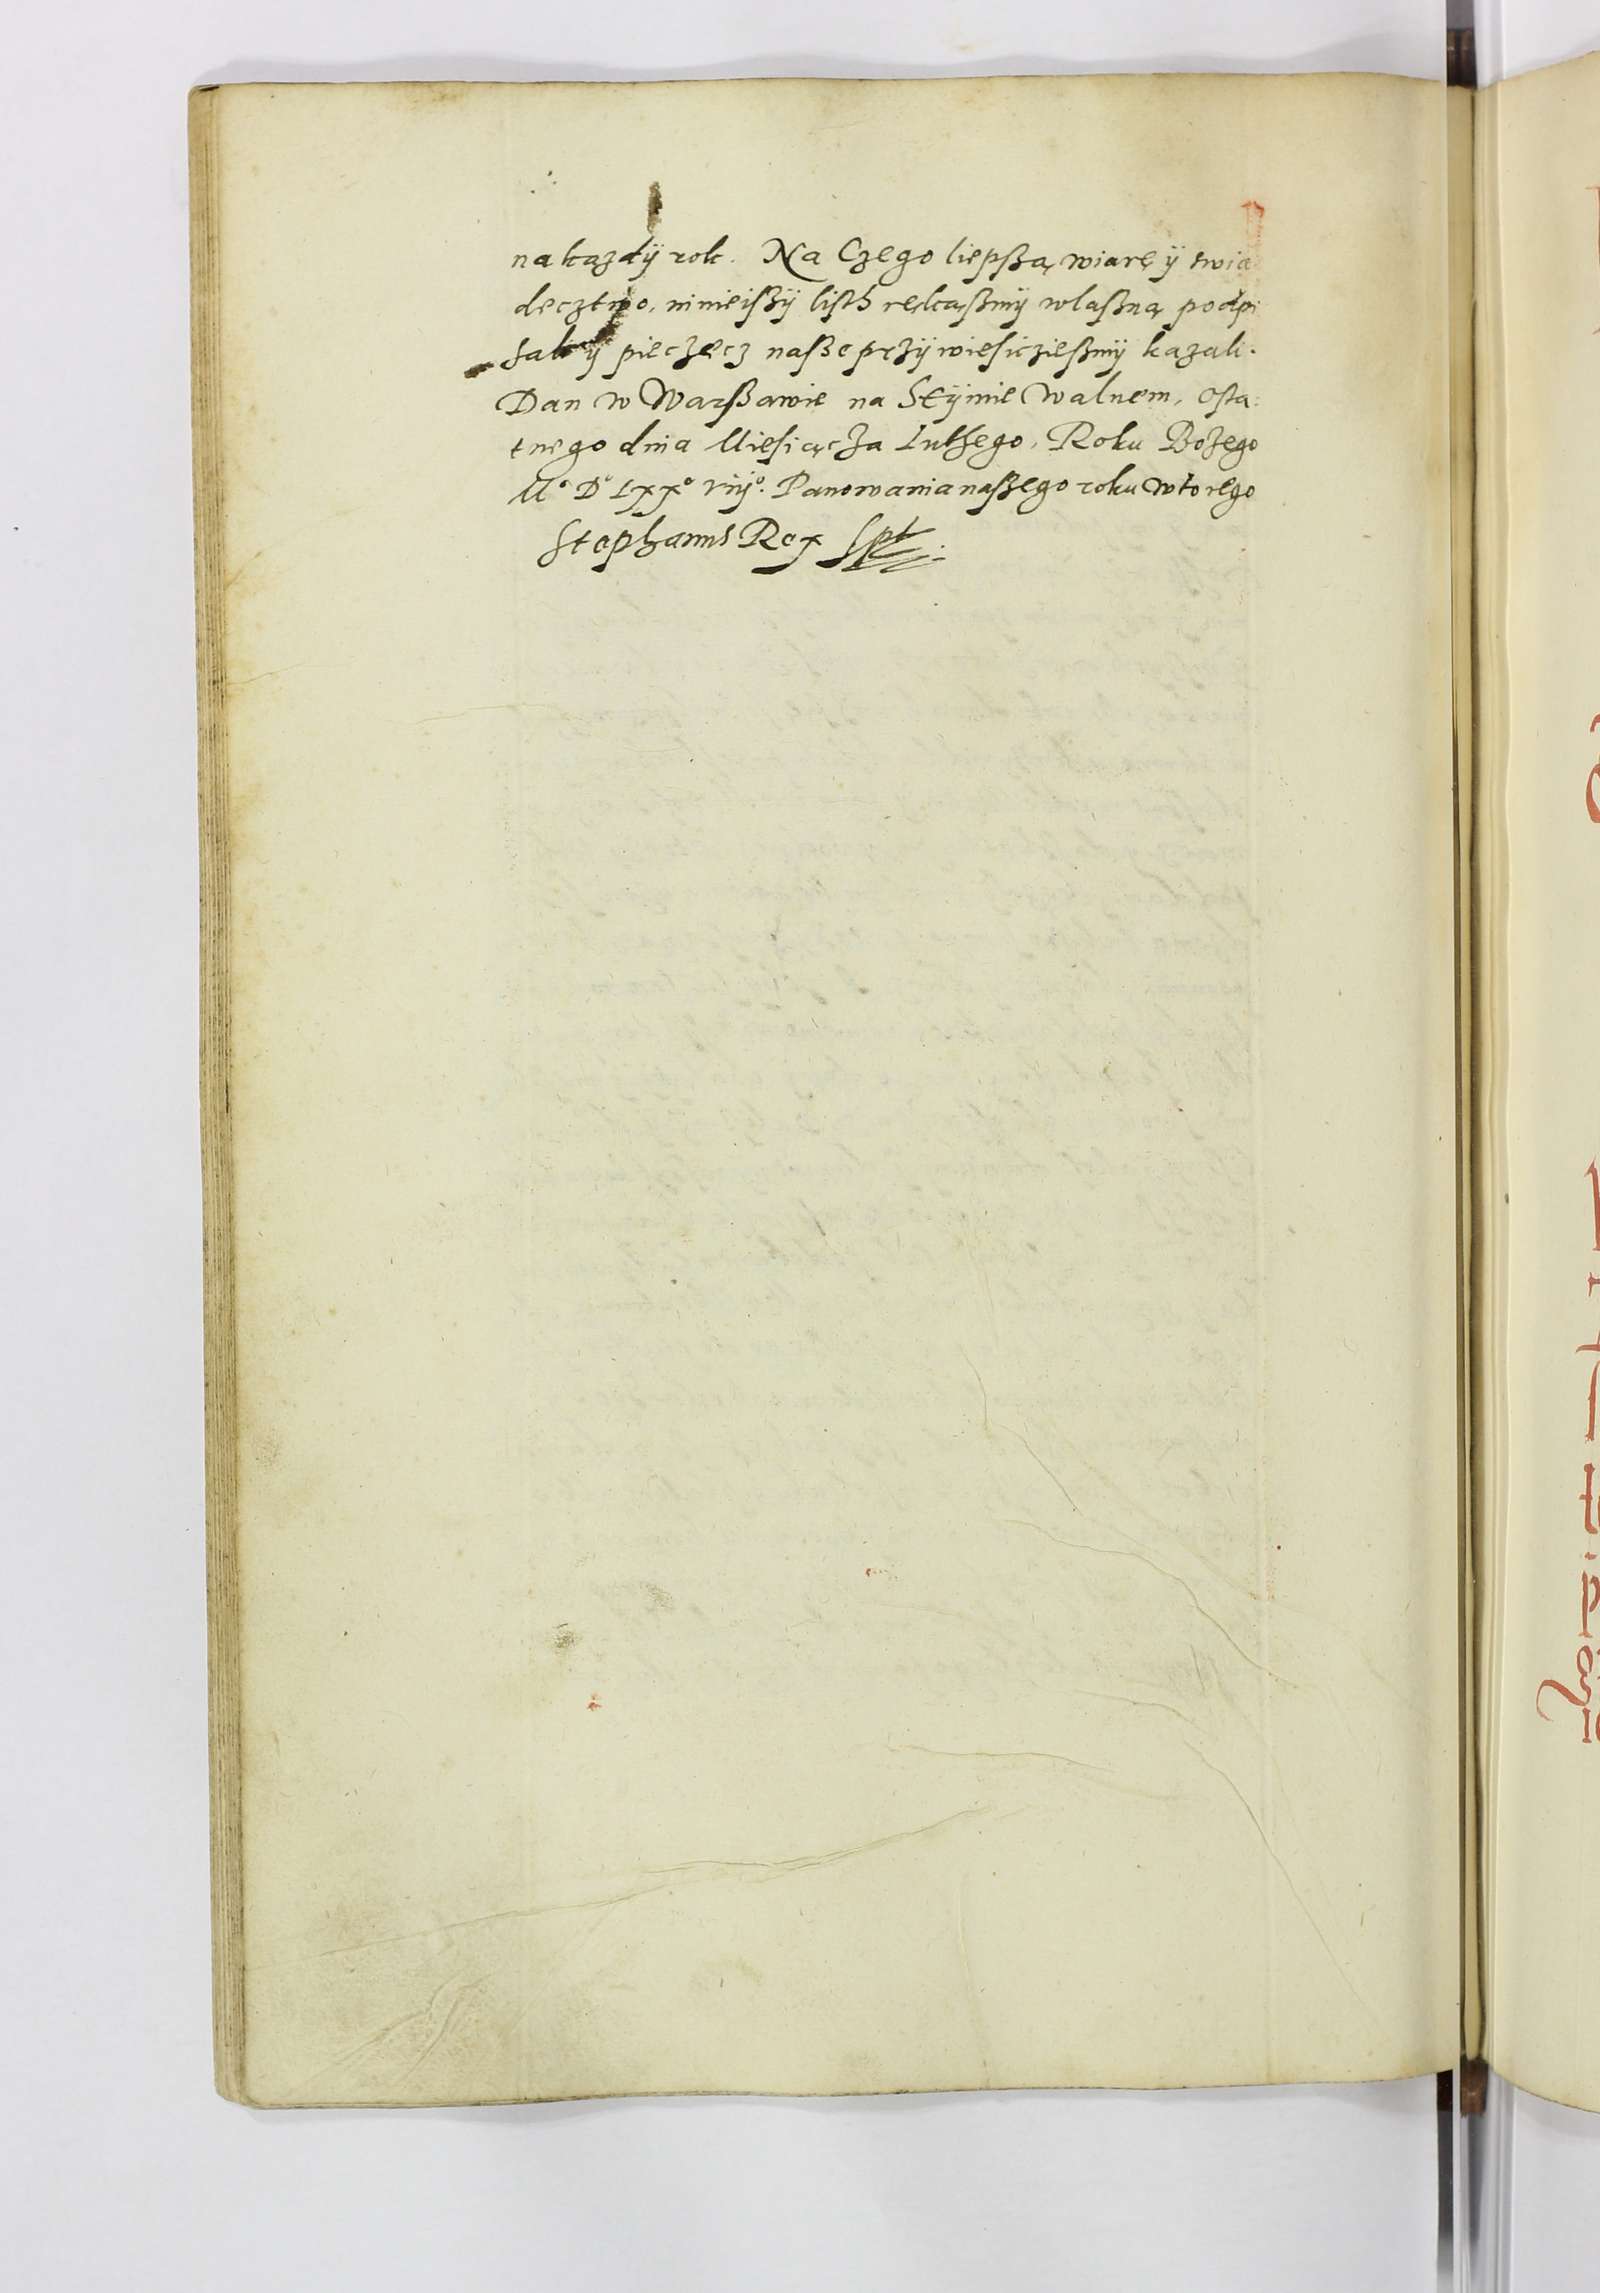 na kazdÿ rok. Na Czego liepßą wiarę ÿ swia
decztwo, ninieißÿ listh rękąßmÿ własną podpi
sali ÿ pieczęcz naßę przÿwiesicziesmÿ kazali.
Dan w Warßawie na Seÿmie Walnem, Osta:
tnego dnia Miesiącza Luthego, Roku Bożego
Mº Dº LXXº viijº. Panowania naßego roku wtorego
Stephanus Rex